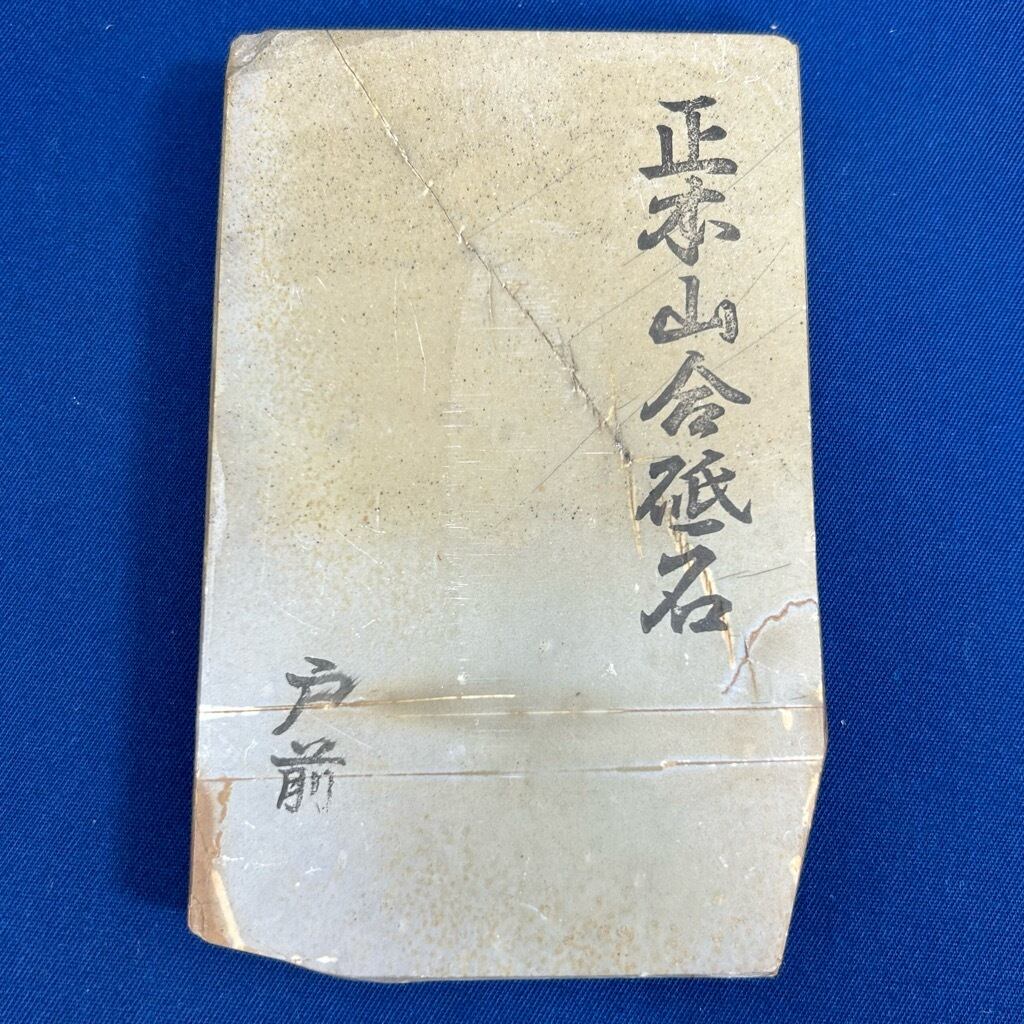 正本山合砥石
戸前